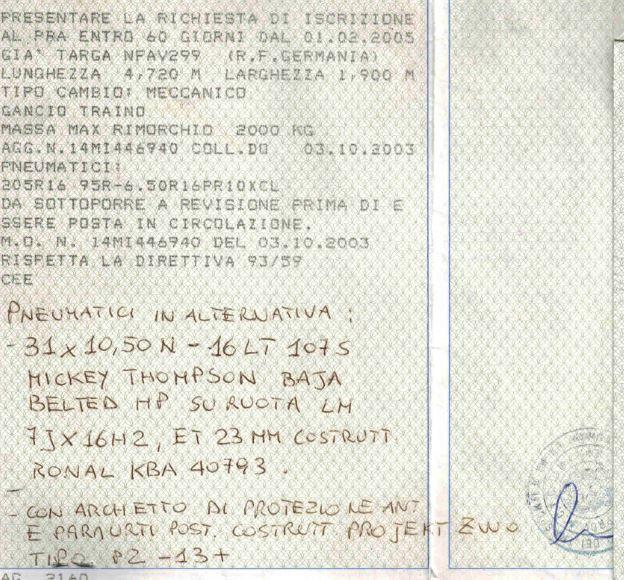 PRESENTARE LA RICHIESTA DI ISCRIZIONE
AL PRA ENTRO 60 GIORNI DAL 01.02.2005
GIA' TARGA NFAV299 (R.F.GERMANIA)
LUNGHEZZA 4,720 M LARGHEZZA 1,900 M
TIPO CAMBIO: MECCANICO
GANCIO TRAINO
MASSA MAX RIMORCHIO 2000 KG
AGG.N.14MI446940 COLL.DO 03.10.2003
PNEUMATICI:
205R16 95R-6.50R16PR10XCL
DA SOTTOPORRE A REVISIONE PRIMA DI E
SSERE POSTA IN CIRCOLAZIONE.
M.O. N. 14MI446940 DEL 03.10.2003
RISPETTA LA DIRETTIVA 93/59
CEE
PNEUMATICI IN ALTERNATIVA :
- 31x10,50 N - 16 LT 107 S
MICKEY THOMPSON BAJA
BELTED HP SU RUOTA LM
7JX16H2, ET 23 MM COSTRUTT.
RONAL KBA 40793.
- CON ARCHETTO DI PROTEZIONE ANT
E PARAURTI POST. COSTRUTT PROJEKT ZWO
TIPO PZ -13+